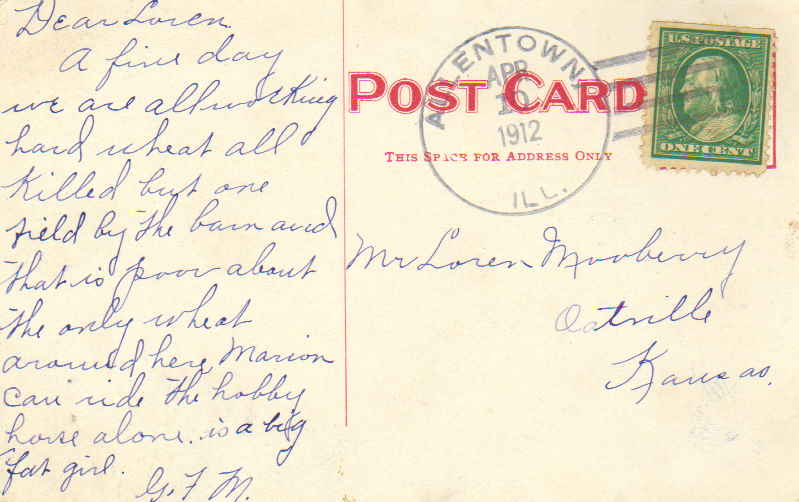 Dear Loren
A fine day
we are all working
hard wheat all
killed but one
field by the barn and
that is poor about
the only wheat
around here Marion
can ride the hobby
horse alone. is a big
fat girl.
G. F. M.
POST CARD
THIS SPACE FOR ADDRESS ONLY
ALLENTOWN,
APR
10
1912
ILL.
U.S. POSTAGE
ONE CENT
Mr Loren Mooberry
Oatville
Kansas.